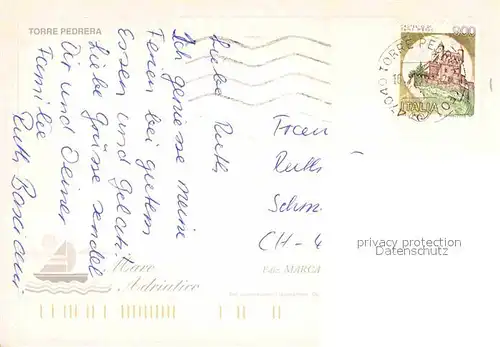 TORRE PEDRERA
Liebe Ruth,
Ich geniesse meine
Ferien bei gutem
Essen und Gelati!
Liebe Grüsse sendet
Dir und Deiner
Familie
Ruth
Mare
Adriatico
800
ITALIA
TORRE PE
Frau
Ruth
CH-4
Ediz. MARCA
privacy protection
Datenschutz